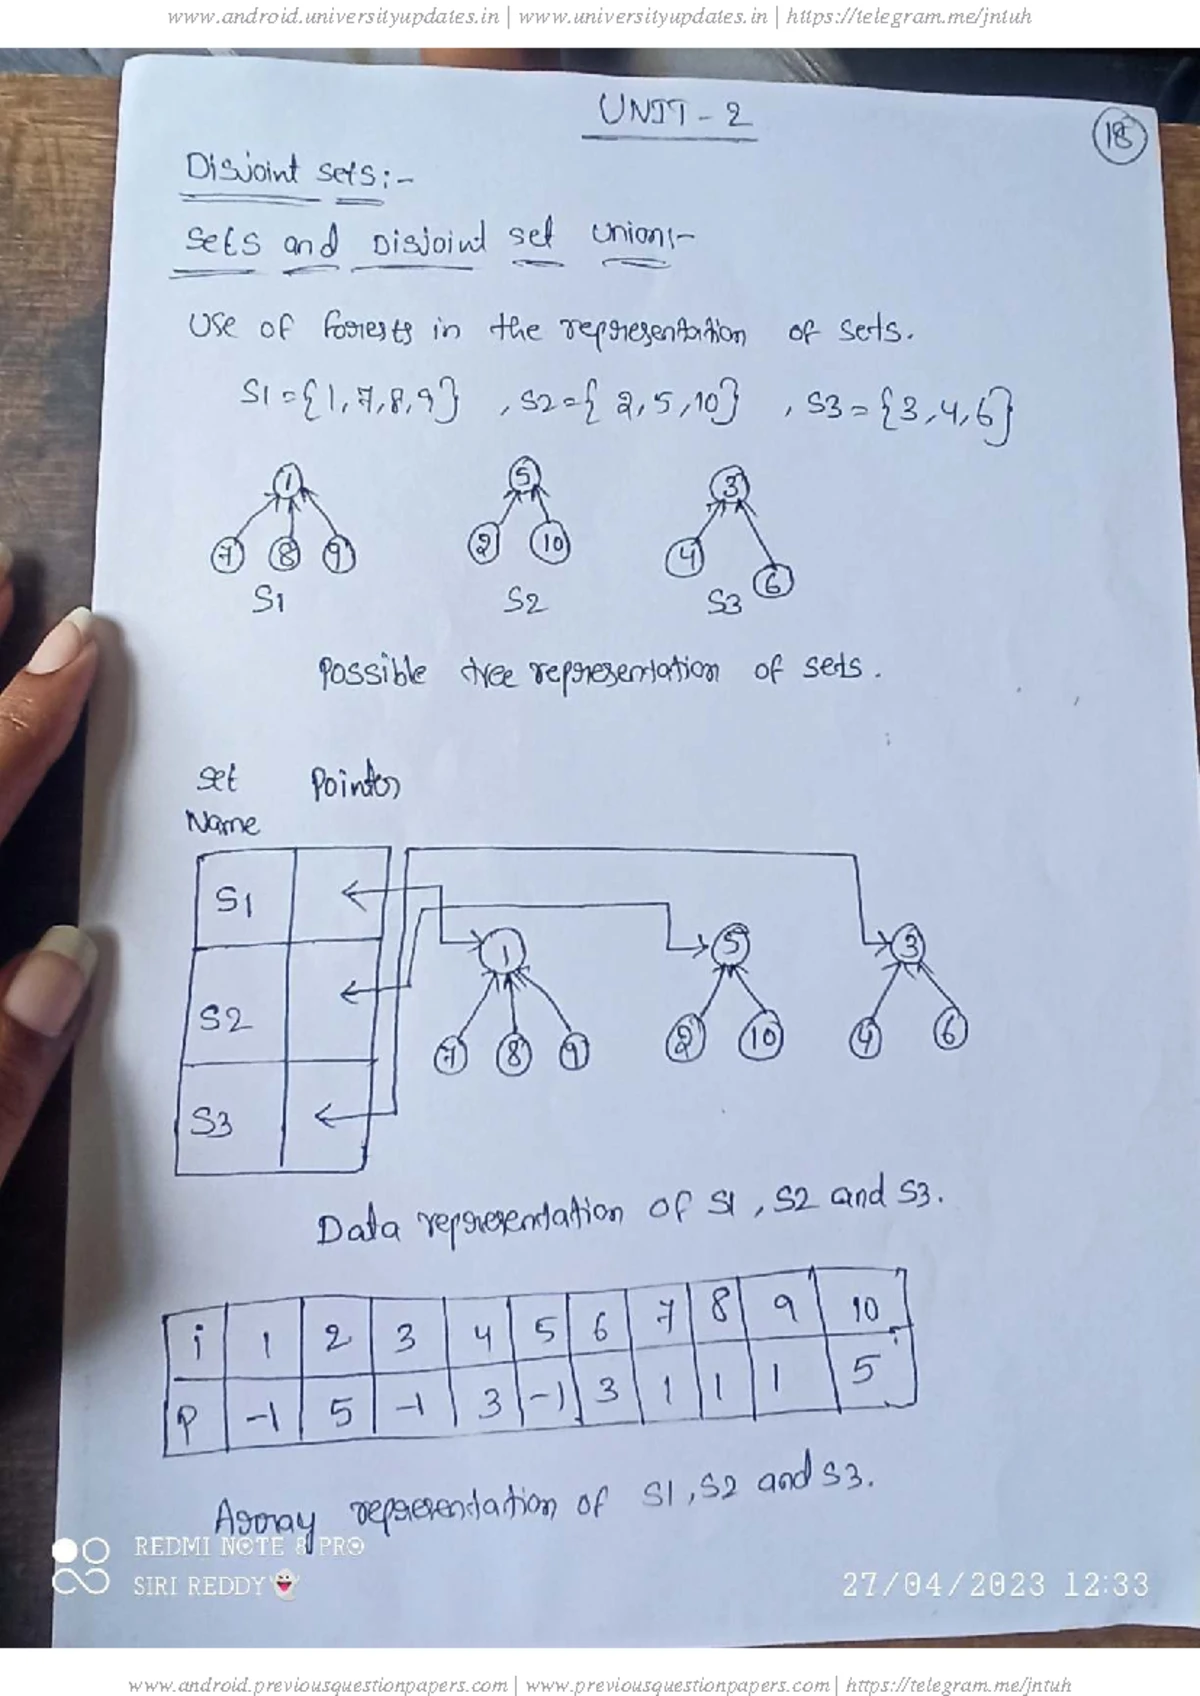 www.android.universityupdates.in | www.universityupdates.in | https://telegram.me/jntuh
UNIT-2
18
Disjoint sets:-
Sets and Disjoint set union:-
Use of forests in the representation of sets.
S1={1,7,8,9} , S2={2,5,10} , S3={3,4,6}
1 5 3
7 8 9 2 10 4 6
S1 S2 S3
Possible tree representation of sets.
Set Pointer
Name
S1
1 5 3
S2
7 8 9 2 10 4 6
S3
Data representation of S1, S2 and S3.
i 1 2 3 4 5 6 7 8 9 10
P -1 5 -1 3 -1 3 1 1 1 5
Array representation of S1, S2 and S3.
REDMI NOTE 8 PRO
SIRI REDDY👻
27/04/2023 12:33
www.android.previousquestionpapers.com | www.previousquestionpapers.com | https://telegram.me/jntuh